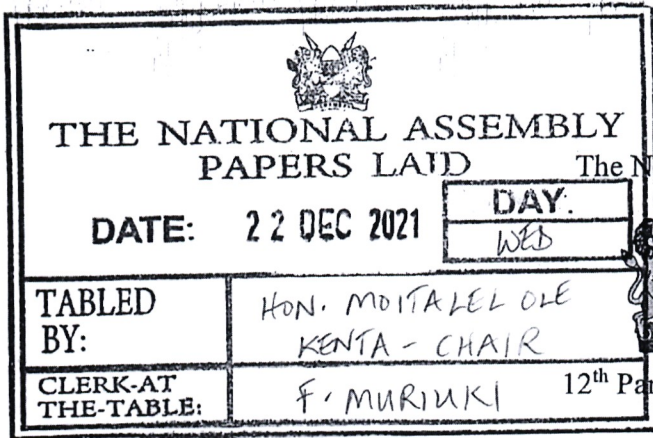 THE NATIONAL ASSEMBLY
PAPERS LAID
The N
DATE: 22 DEC 2021
DAY.
WED
TABLED BY:
HON. MOITALEL OLE
KENTA - CHAIR
CLERK-AT THE-TABLE:
F. MURIUKI
12th Par